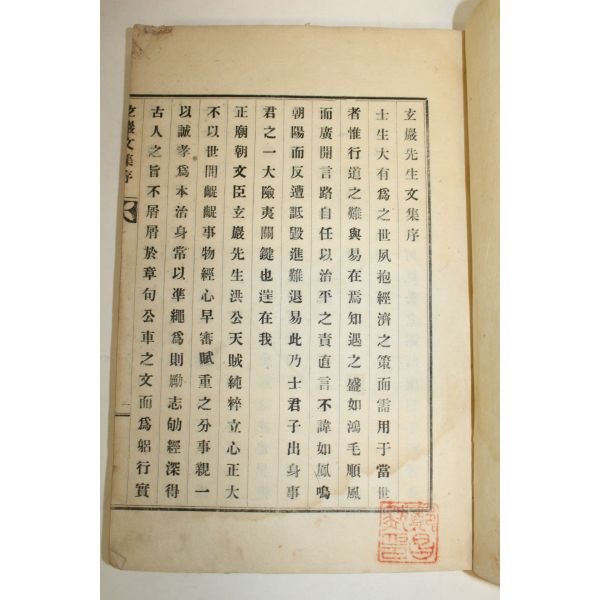 玄巖先生文集序
士生大有爲之世夙抱經濟之策而需用于當世
者惟行道之難與易在焉知遇之盛如鴻毛順風
而廣開言路自任以治平之責直言不諱如鳳鳴
朝陽而反遭詆毁進難退易此乃士君子出身事
君之一大險夷關鍵也逹在我
正廟朝文臣玄巖先生洪公天賊純粹立心正大
不以世閒齪齪事物經心早審賦重之分事親一
以誠孝爲本治身常以凖繩爲則勵志劬經深得
古人之旨不屑屑於章句公車之文而爲躳行實
玄巖文集序
一